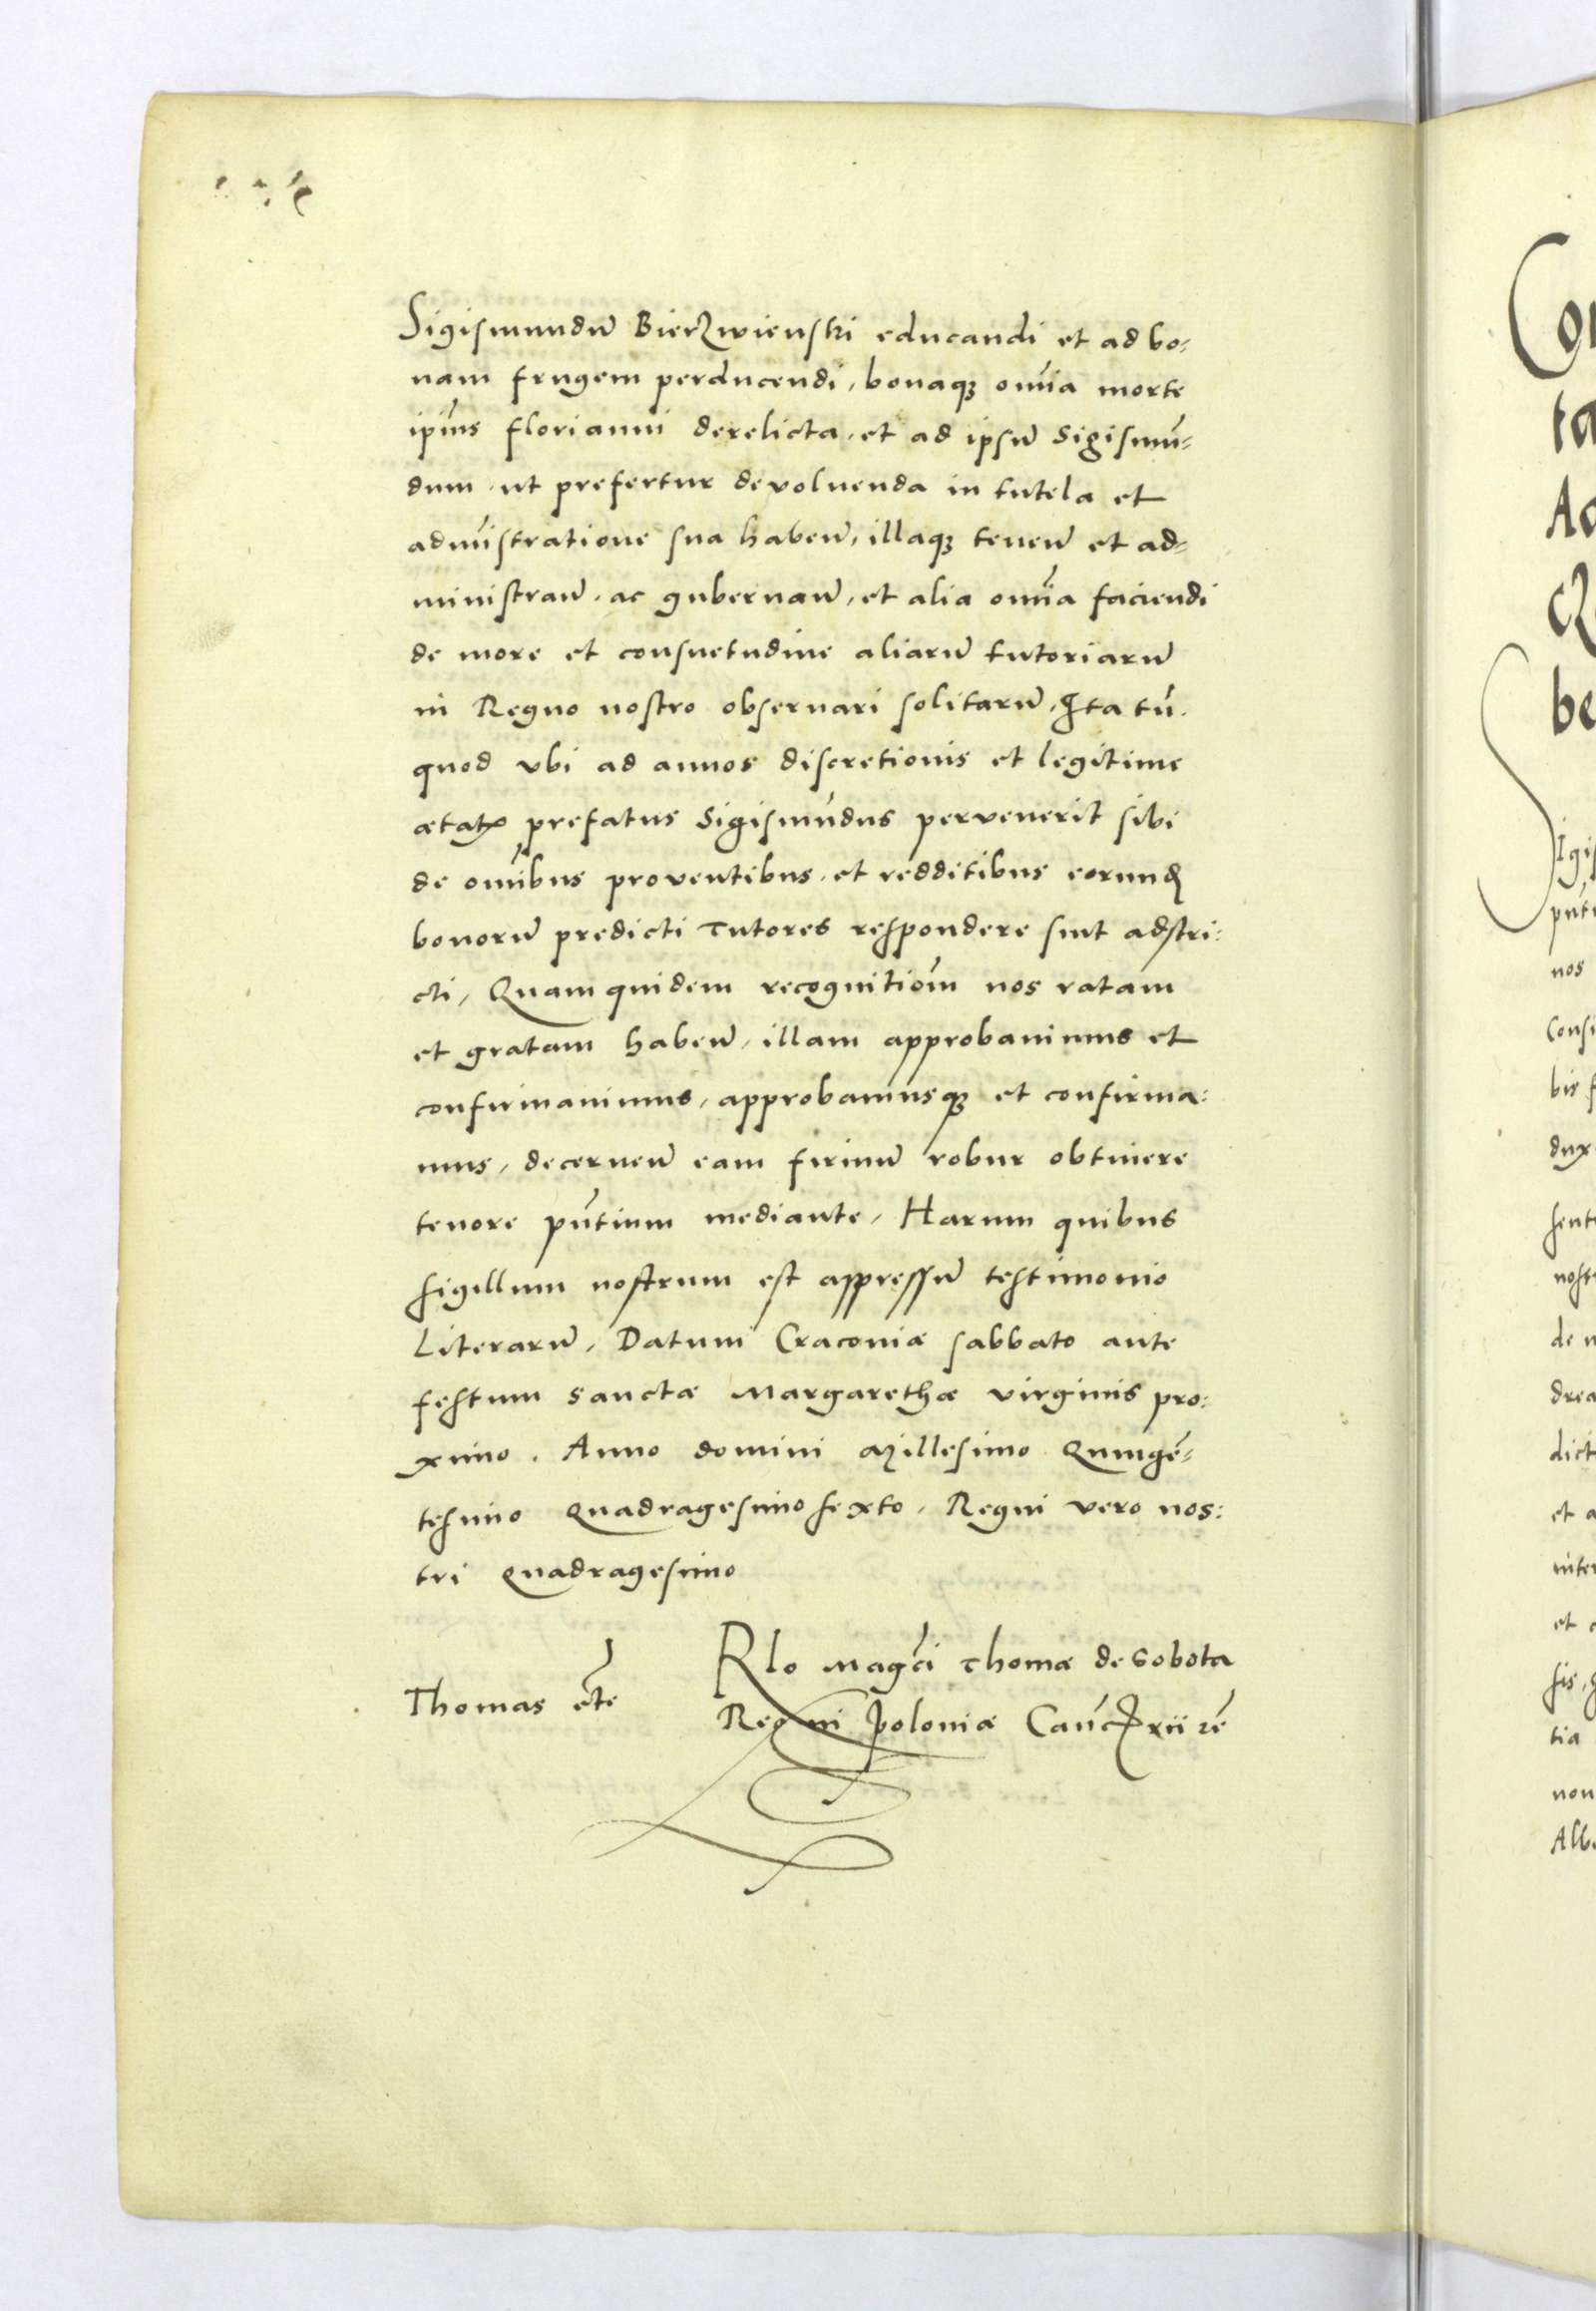 Sigismundū Bierzwienski educandi et ad bo-
nam frugem perducendi, bonaqꝫ om̄ia morte
ip̄ius florianni derelicta, et ad ipsū Sigismū-
dum ut prefertur devoluenda in tutela et
adm̄istratione sua habeñ, illaqꝫ teneñ et ad-
ministrañ, ac gubernañ, et alia om̄ia faciendi
de more et consuetudine aliarū tutoriarū
in Regno nostro obseruari solitarū, Ita tn̄.
quod vbi ad annos discretionis et legitime
ætatꝭ prefatus Sigismūdus pervenerit sibi
de om̄ibus proventibus, et redditibus eorund̄
bonorū predicti Tutores respondere sint adstri:
cti, Quam quidem recognitiōm nos ratam
et gratam habeñ, illam approbauimus et
confirmauimus, approbamusqꝫ et confirma:
mus, decerneñ eam firmū robur obtinere
tenore pn̄tium mediante, Harum quibus
sigillum nostrum est appressū testimonio
Literarū, Datum Cracoviæ sabbato ante
festum sanctæ Margarethæ virginis pro:
ximo. Anno domini Millesimo Quingē-
tesimo Quadragesimo sexto, Regni vero nos:
tri quadragesimo
Rlo Magc̄i Thomæ de Sobota
Thomas etc̄
Regni Poloniæ Canc̄rii
Co
ta
Ac
be
igis
pn̄t
nos
Consi
bis f
dux
sent
nost
de n
drea
dict
et a
inter
et c
sis, g
tia
non
Albe